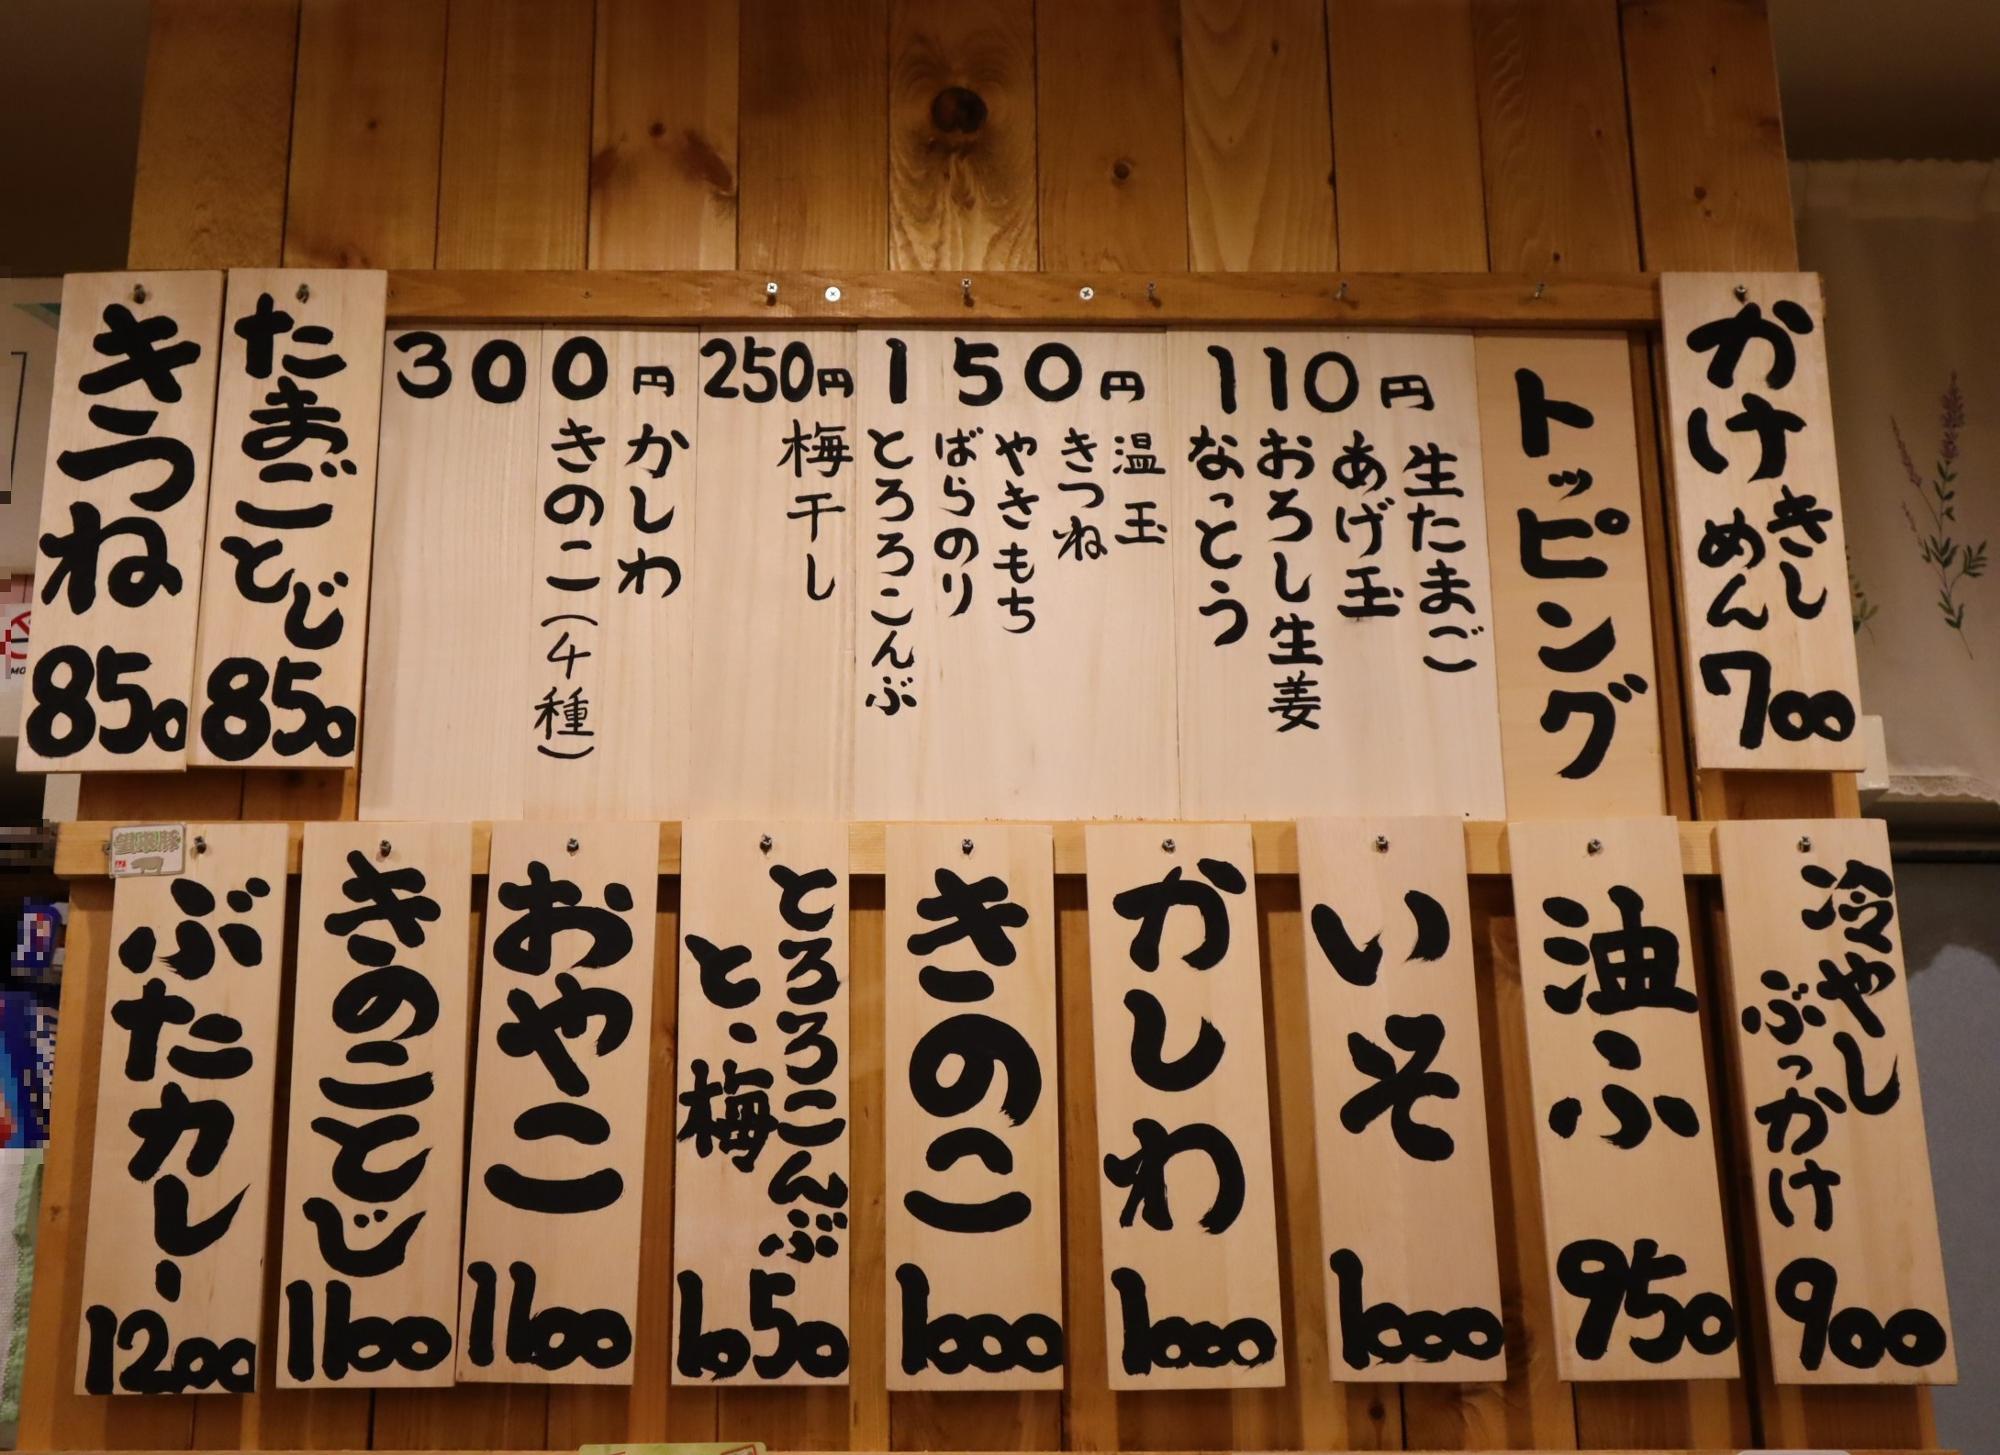 かけ
きし
めん
700
トッピング
110円
生たまご
あげ玉
おろし生姜
なっとう
150円
温玉
きつね
やきもち
ばらのり
とろろこんぶ
250円
梅干し
300円
かしわ
きのこ(4種)
たまごとじ
850
きつね
850
冷やし
ぶっかけ
900
油ふ
950
いそ
1000
かしわ
1000
きのこ
1000
とろろこんぶ
と、梅
1050
おやこ
1100
きのことじ
1100
ぶたカレー
1200